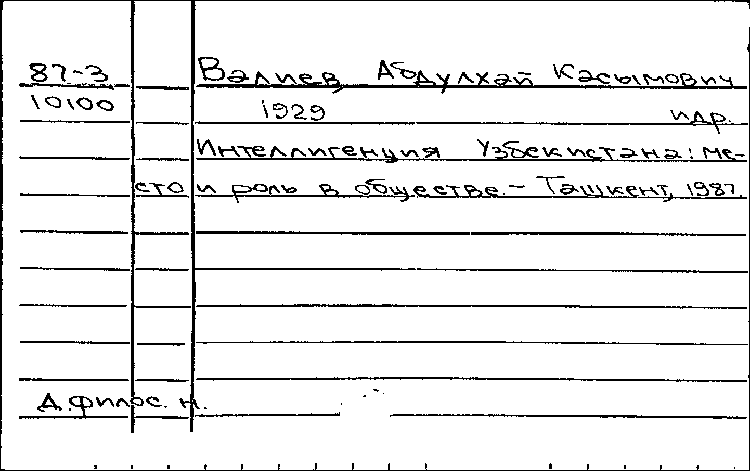 87-3 Валиев, Абдулхай Касымович
10100 1929 и др.
Интеллигенция Узбекистана: ме-
сто и роль в обществе. - Ташкент, 1987.
Д. филос. н.